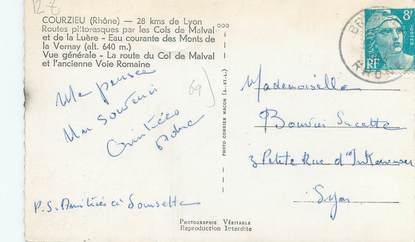 128
COURZIEU (Rhône) — 28 kms de Lyon
Routes pittoresques par les Cols de Malval
et de la Luère - Eau courante des Monts de
la Vernay (alt. 640 m.)
Vue générale - La route du Col de Malval
et l'ancienne Voie Romaine
Ma pensée
Mon souvenir
Amitiées
69
P.S. Amitiées à
PHOTO-COMBIER MACON (S.-ET-L.)
PHOTOGRAPHIE VÉRITABLE
Reproduction Interdite
8F
RF
RHONE
Mademoiselle
Bouvier Sucette
3 Petite Rue d'
Lyon